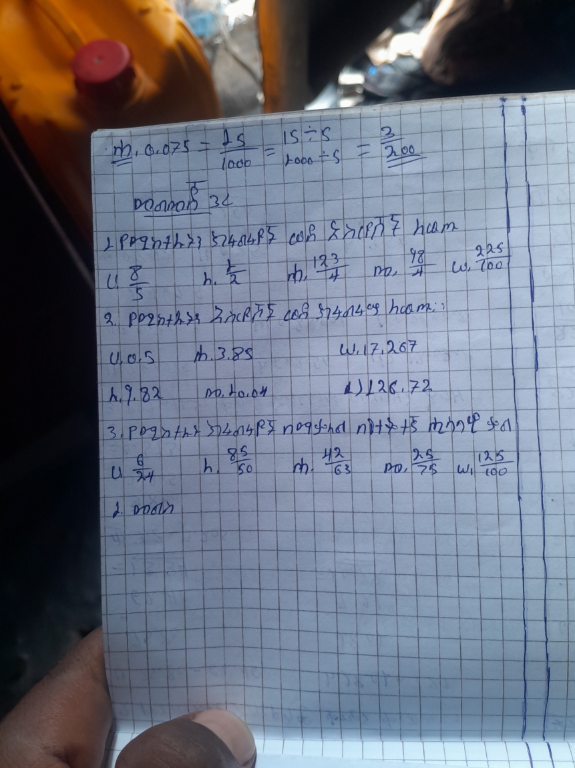 ሐ. 0.075 = 75/1000 = 15÷5/1000÷5 = 3/200
መልመጃ 3ሪ
1. የሚከተሉትን ክፍልፋዮች ወደ ዴሲማሎች ለውጡ
ሀ. 8/5 ለ. 1/2 ሐ. 123/4 መ. 48/4 ሠ. 225/100
2. የሚከተሉትን ዴሲማሎች ወደ ክፍልፋይ ለውጡ::
ሀ. 0.5 ሐ. 3.85 ሠ. 17.267
ለ. 9.82 መ. 10.04 ረ) 126.72
3. የሚከተሉት ክፍልፋዮች
ሀ 6/24 ለ. 85/50 ሐ. 42/63 መ. 25/75 ሠ. 125/100
1. መልስ